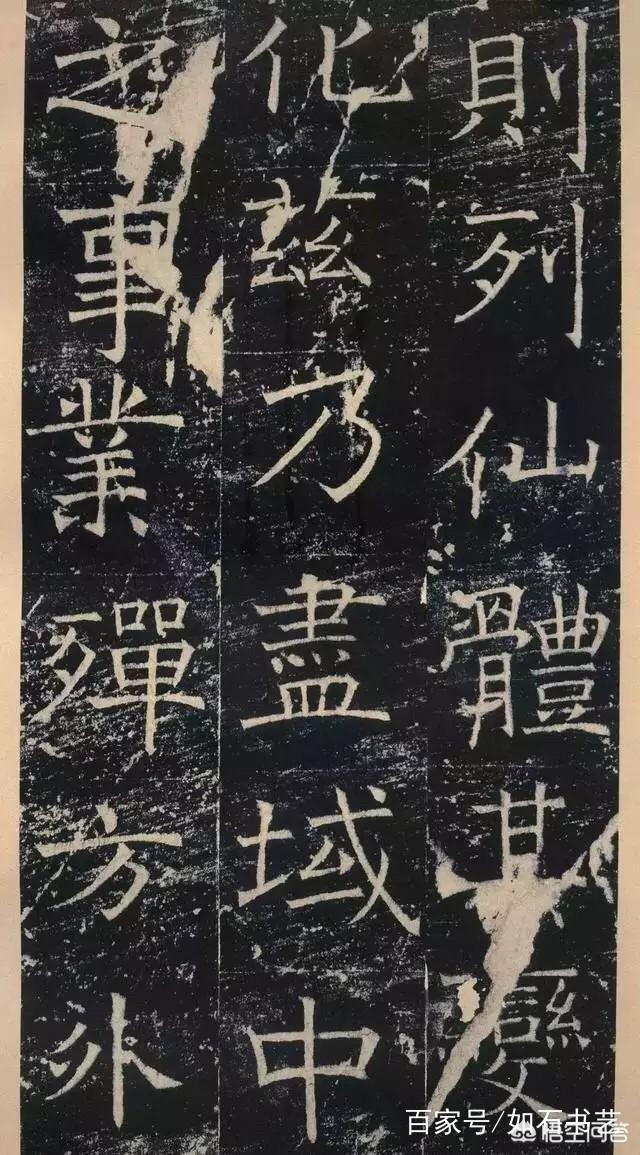 則列仙體其變
化茲乃盡域中
之事業殫方外
百家号/如石书艺
悟空问答